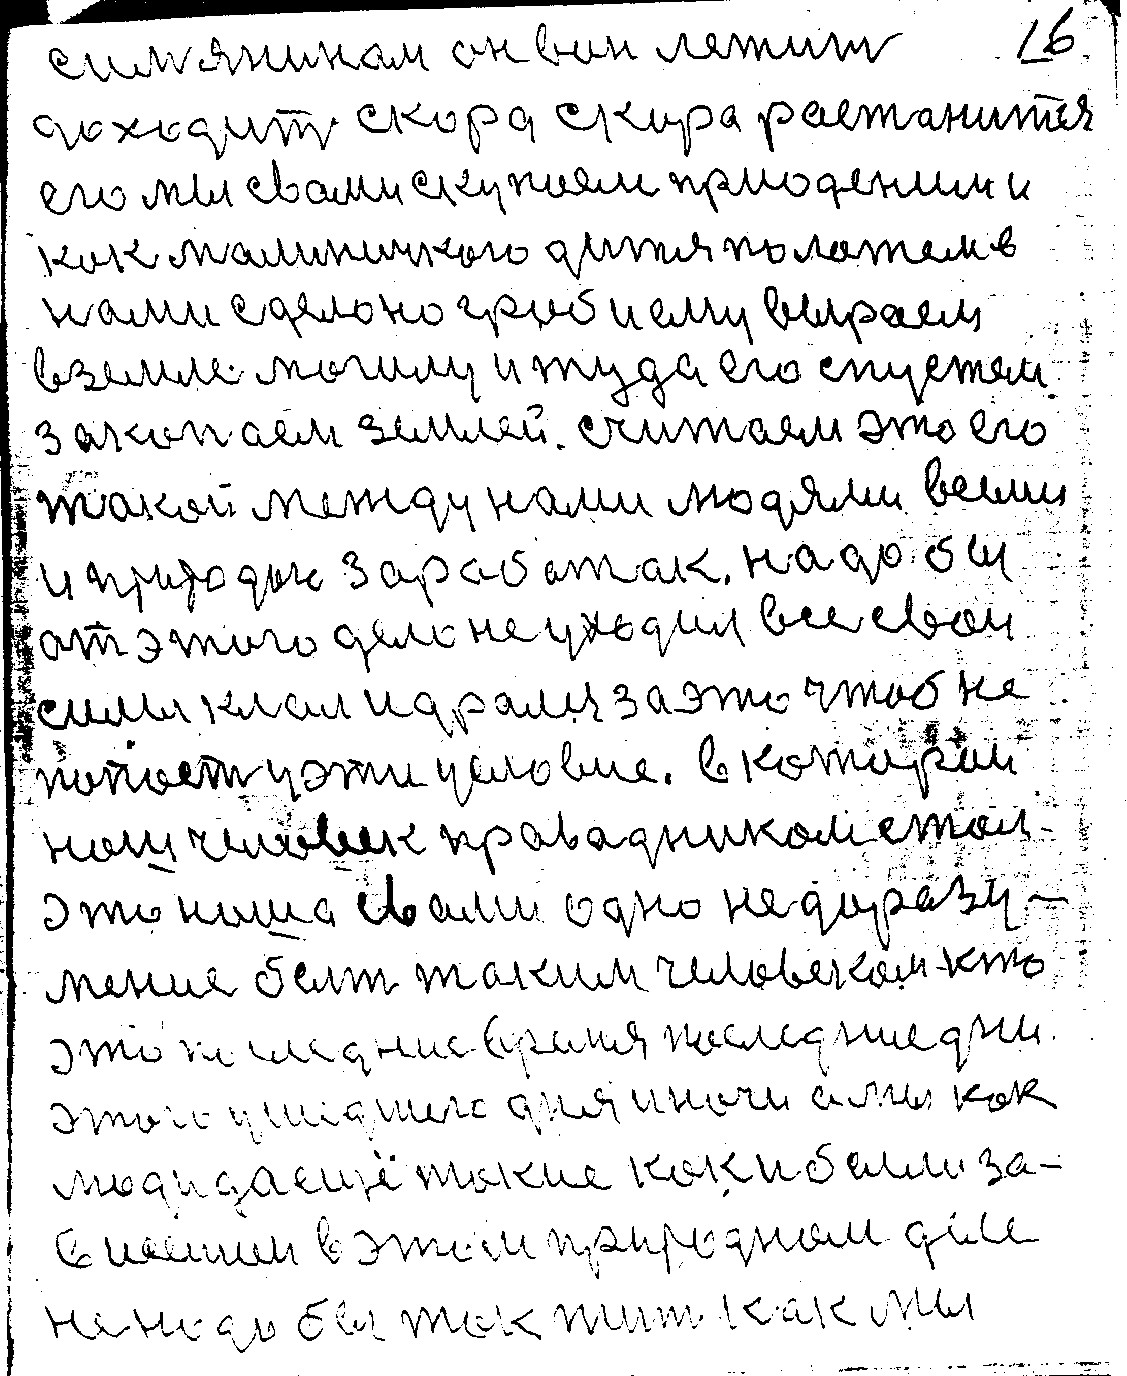 16
симянинам он вон лежит
доходит скора скора растанится
его мы свами скупаем приоденим и
как малиничкого дитя положем в
нами сделоно гриб и ему выраем
в земле могилу и туда его спустем
закопаем землей. считаем это его
такой между нами людями всеми
и природою заработак. надо бы
ат этого дело не уходил все свои
силы клал и дрался за это чтоб не
попасть у эти условие. в которои
наш человек правадником стал
это наша свами одно недоразу-
мение быть таким человеком кто
это последние время последние дни.
этого ушедшего дня и ночи а мы как
люди да ещё такие как и были за-
висими в этом природном деле
не надо бы так жит как мы